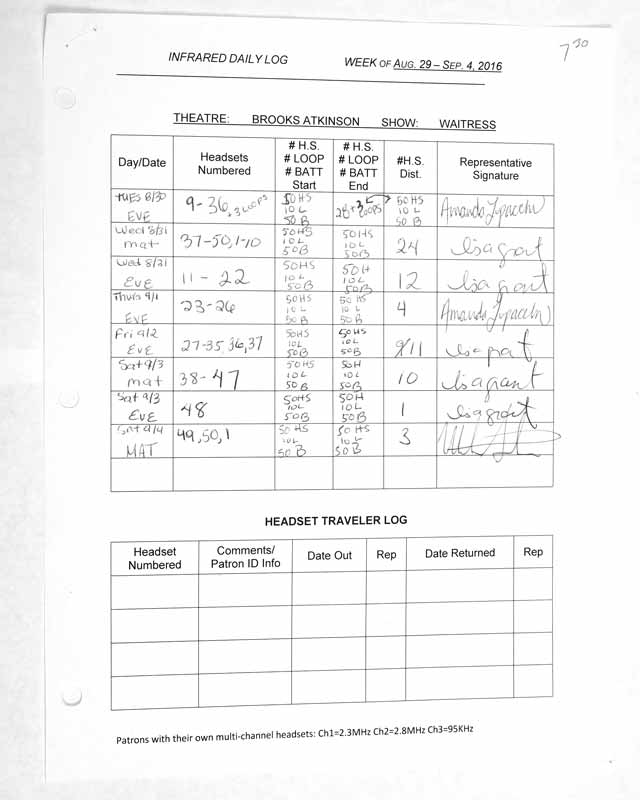 7 30
INFRARED DAILY LOG WEEK OF AUG. 29 – SEP. 4, 2016
THEATRE: BROOKS ATKINSON SHOW: WAITRESS
Day/Date Headsets Numbered # H.S. # LOOP # BATT Start # H.S. # LOOP # BATT End #H.S. Dist. Representative Signature
TUES 8/30 EVE 9-36, 3 LOOPS 50HS 10L 50B 28 + 3 LOOPS 50HS 10L 50B Amanda
Wed 8/31 mat 37-50, 1-10 50HS 10L 50B 50HS 10L 50B 24 lisa grant
Wed 8/31 EVE 11 - 22 50HS 10L 50B 50H 10L 50B 12 lisa grant
Thurs 9/1 EVE 23-26 50HS 10L 50B 50HS 10L 50B 4 Amanda
Fri 9/2 EVE 27-35, 36, 37 50HS 10L 50B 50HS 10L 50B 11 lisa grant
Sat 9/3 mat 38-47 50HS 10L 50B 50H 10L 50B 10 lisa grant
Sat 9/3 EVE 48 50HS 10L 50B 50H 10L 50B 1 lisa grant
9/4 MAT 49, 50, 1 50HS 10L 50B 50HS 10L 50B 3
HEADSET TRAVELER LOG
Headset Numbered Comments/ Patron ID Info Date Out Rep Date Returned Rep
Patrons with their own multi-channel headsets: Ch1=2.3MHz Ch2=2.8MHz Ch3=95KHz